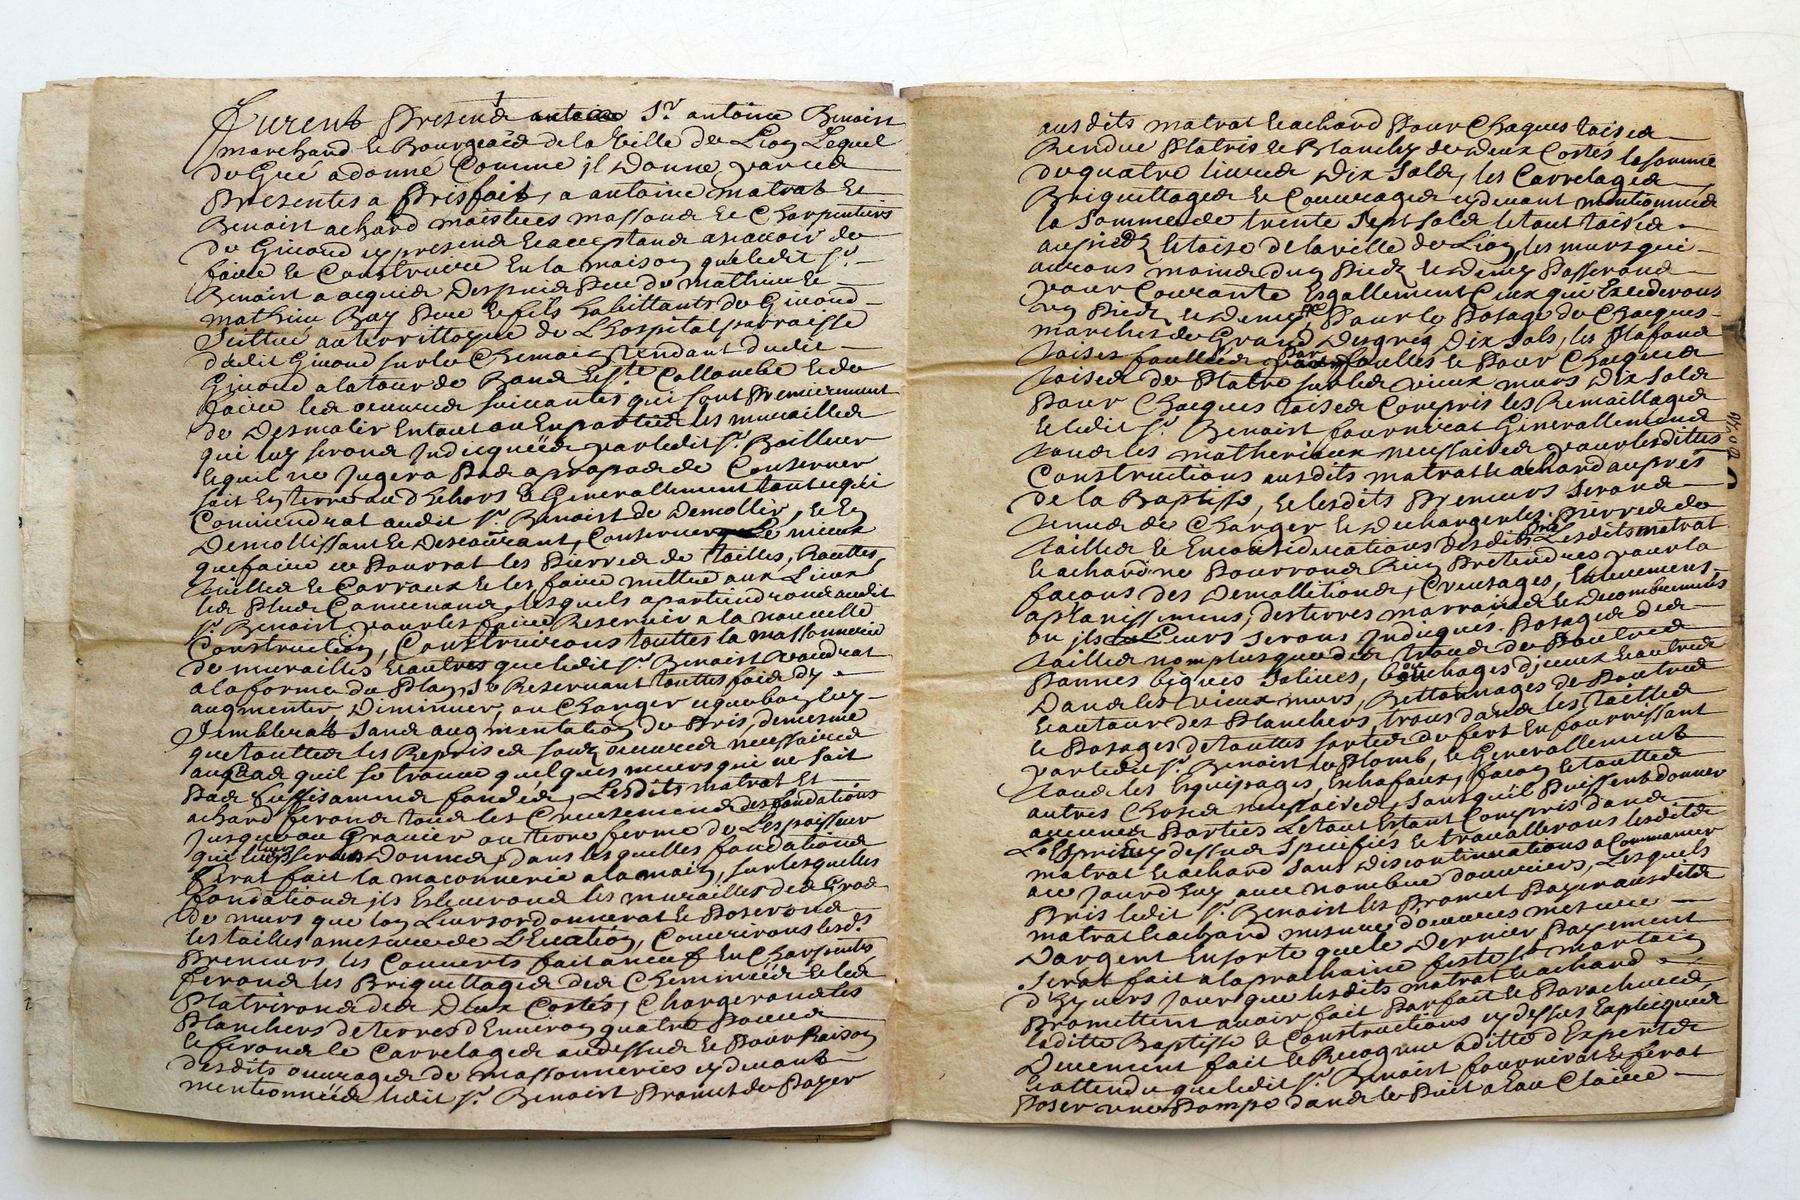 Furent Presend Sr. antoine Benoist
marchand et Bourgeois de la Ville de Lion Lequel
de Gré a donné Comme jl Donne par ces
Presentes a Prisfait, a antoine matrat et
Benoist achard maistres massons et Charpentiers
de Givord cy presend et acceptans a scavoir de
faire et Construire En la maison que ledit Sr.
Benoist a acquise Despuis peu de mathieu et
mathieu Bay Pere et fils habittants de Givord
scittué au territtoyre de L'hospital parraisse
dudit Givord sur le Chemain tendant dudit
Givord a la tour de et Ste Collombe et de
faire les oeuvres suivantes qui sont Premierement
de Desmolir En tout ou En partie les murailles
qui luy seront Jndicquées par ledit Sr. Bailleur
lequel ne Jugera Pas a propos de Conserver
soit En terre au dehors et Generallement tout ce qui
Conviendrat audit Sr. Benoist de Demollir, et En
Demollissant et Conserver Le mieux
que faire ce Pourrat les Pierres de tailles,
tuilles et Carraux et les faire mettre aux Lieux
les Plus Convenans, lesquels apartiendront audit
Sr. Benoist pour les faire Reservir a la nouvelle
Construction, Construirons touttes la massonnerie
de murailles et autres que ledit Sr. Benoist voudrat
a la forme du Plan, se Reservant touttes fois d'y
augmenter Diminuer, ou Changer ce que bon luy
semblerat sans augmentation de Pris, de mesme
que touttes les Reprises souz oeuvres necessaires
au cas quil se trouve quelques murs qui ne soit
Pas suffisamment fondés, Lesdits matrat et
achard feront tous les Creusements des fondations
Jusques au Gravier ou terre ferme de L'espaisseur
qui leurs Donnée, dans lesquelles fondations
serat fait la maconnerie a la main, sur lesquelles
fondations jls Esleveront les murailles des
de murs que lon Leurs ordonnerat et Poseront
les tailles a mesure de L'Elevation, Couvrirons lesd.
Preneurs les Couverts fait a neuf En Charpente
feront les Briquettages des Cheminées et les
Platriront des Deux Costés, Chargeront les
Planchers de terres d'Environ quatre Pouces
et feront le Carrelages au dessus et Pour Raison
desdits ouvrages de massonneries cy devant
mentionnés ledit Sr. Benoist Promet de Payer
ausdits matrat et achard Pour Chaques toises
Rendue Platris et Blanchy de Deux Costés la somme
de quatre livres Dix Sols, les Carrelages
Briquettages et Couvrages cy devant mentionnés
la Somme de trente Sept sols le tout toises
au pied et toise de la ville de Lion, les murs qui
aurons moins dun Pied et Demy Passerons
pour Courante Esgallement Ceux qui Excederons
un Pied et Demy, Pour le Posage de Chacques
marches de Grand Desgrés Dix Sols, les Plafond
toises foulles par foulles et Pour Chacques
toises de Platre sur les vieux murs Dix Sols
Pour Chacques toises Compris les Remaillages
et ledit Sr. Benoist fournirat Generallement
tous les matheriaux necessaires pour lesdittes
Constructions ausdits matrat et achard aupres
de la Baptisse, et lesdits Preneurs seront
tenus de Charger et dechargerles pierres de
taille et En considerations desdits Pris Lesdits matrat
et achard ne Pourrons Rien Pretendres pour la
facons des Demollitions, Creusages, Enlevemens,
applanissemens, des terres marrains et Decombremens
ou jls Leurs serons Jndiqués. Posages des
tailles nomplusque des trous de Poutres
Pannes biques Solives, bouchages d'jceux et autres
Dans les vieux murs, Rettournages de Poutres
et autour des Planchers, trous dans les tailles
et Posages de touttes sortes de fert En fournissant
par ledit Sr. Benoist le Plomb, et Generallement
tous les Esquipages, Enchafaux, facon et touttes
autres Choses necessaires, sans quil Puissent donner
aucunes Parties Le tout Estant Compris dans
Les pris cy dessus Specifiés et travallerons lesdits
matrat et achard sans Discontinuations a Commancer
au Jourdhuy avec nombre d'ouvriers, Lesquels
Pris ledit Sr. Benoist les Promet Payer ausdits
matrat et achard mesure d'ouvres mesure
Dargent Ensorte que le Dernier Payement
Serat fait a la prochaine feste St. martain
d'hyvers Jour que lesdits matrat et achard
Promettent avoir fait Parfait et Parachevé
laditte Baptisse et Constructions cy dessus Explicquée
Duement fait et Recognue a ditte d'Experts
et attendu que ledit Sr. Benoist fournirat et ferat
Poser une Pompe dans le Puit a Eau Claire